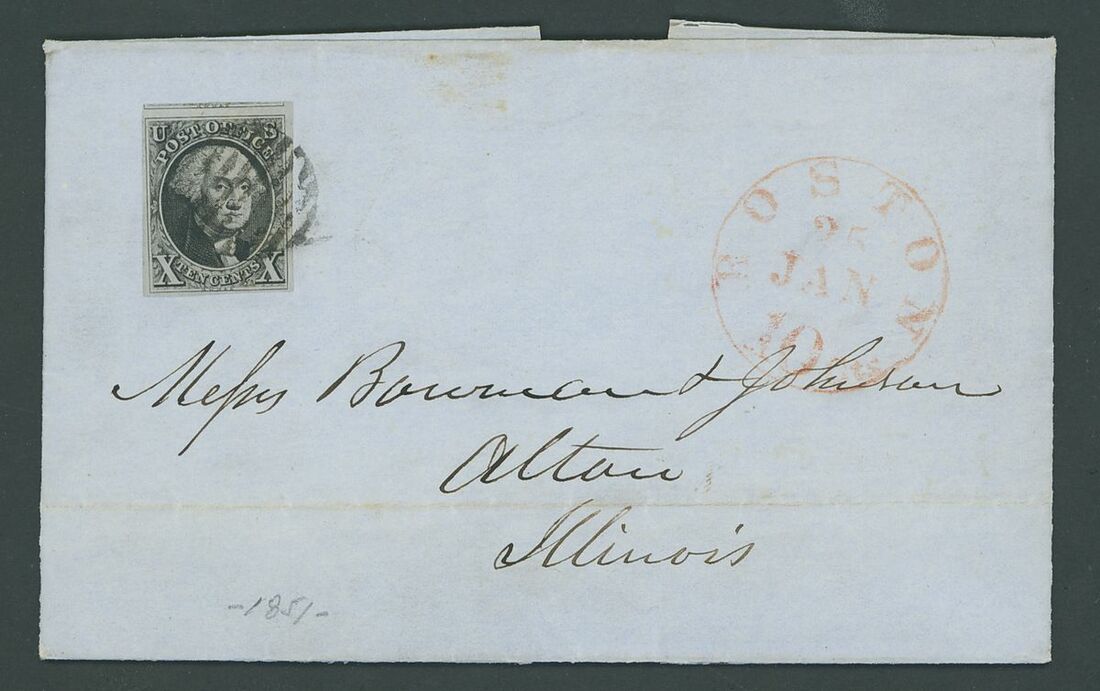 U S
POST OFFICE
X TEN CENTS X
BOSTON
25
JAN
10
Messrs Bowman & Johnson
Alton
Illinois
-1851-